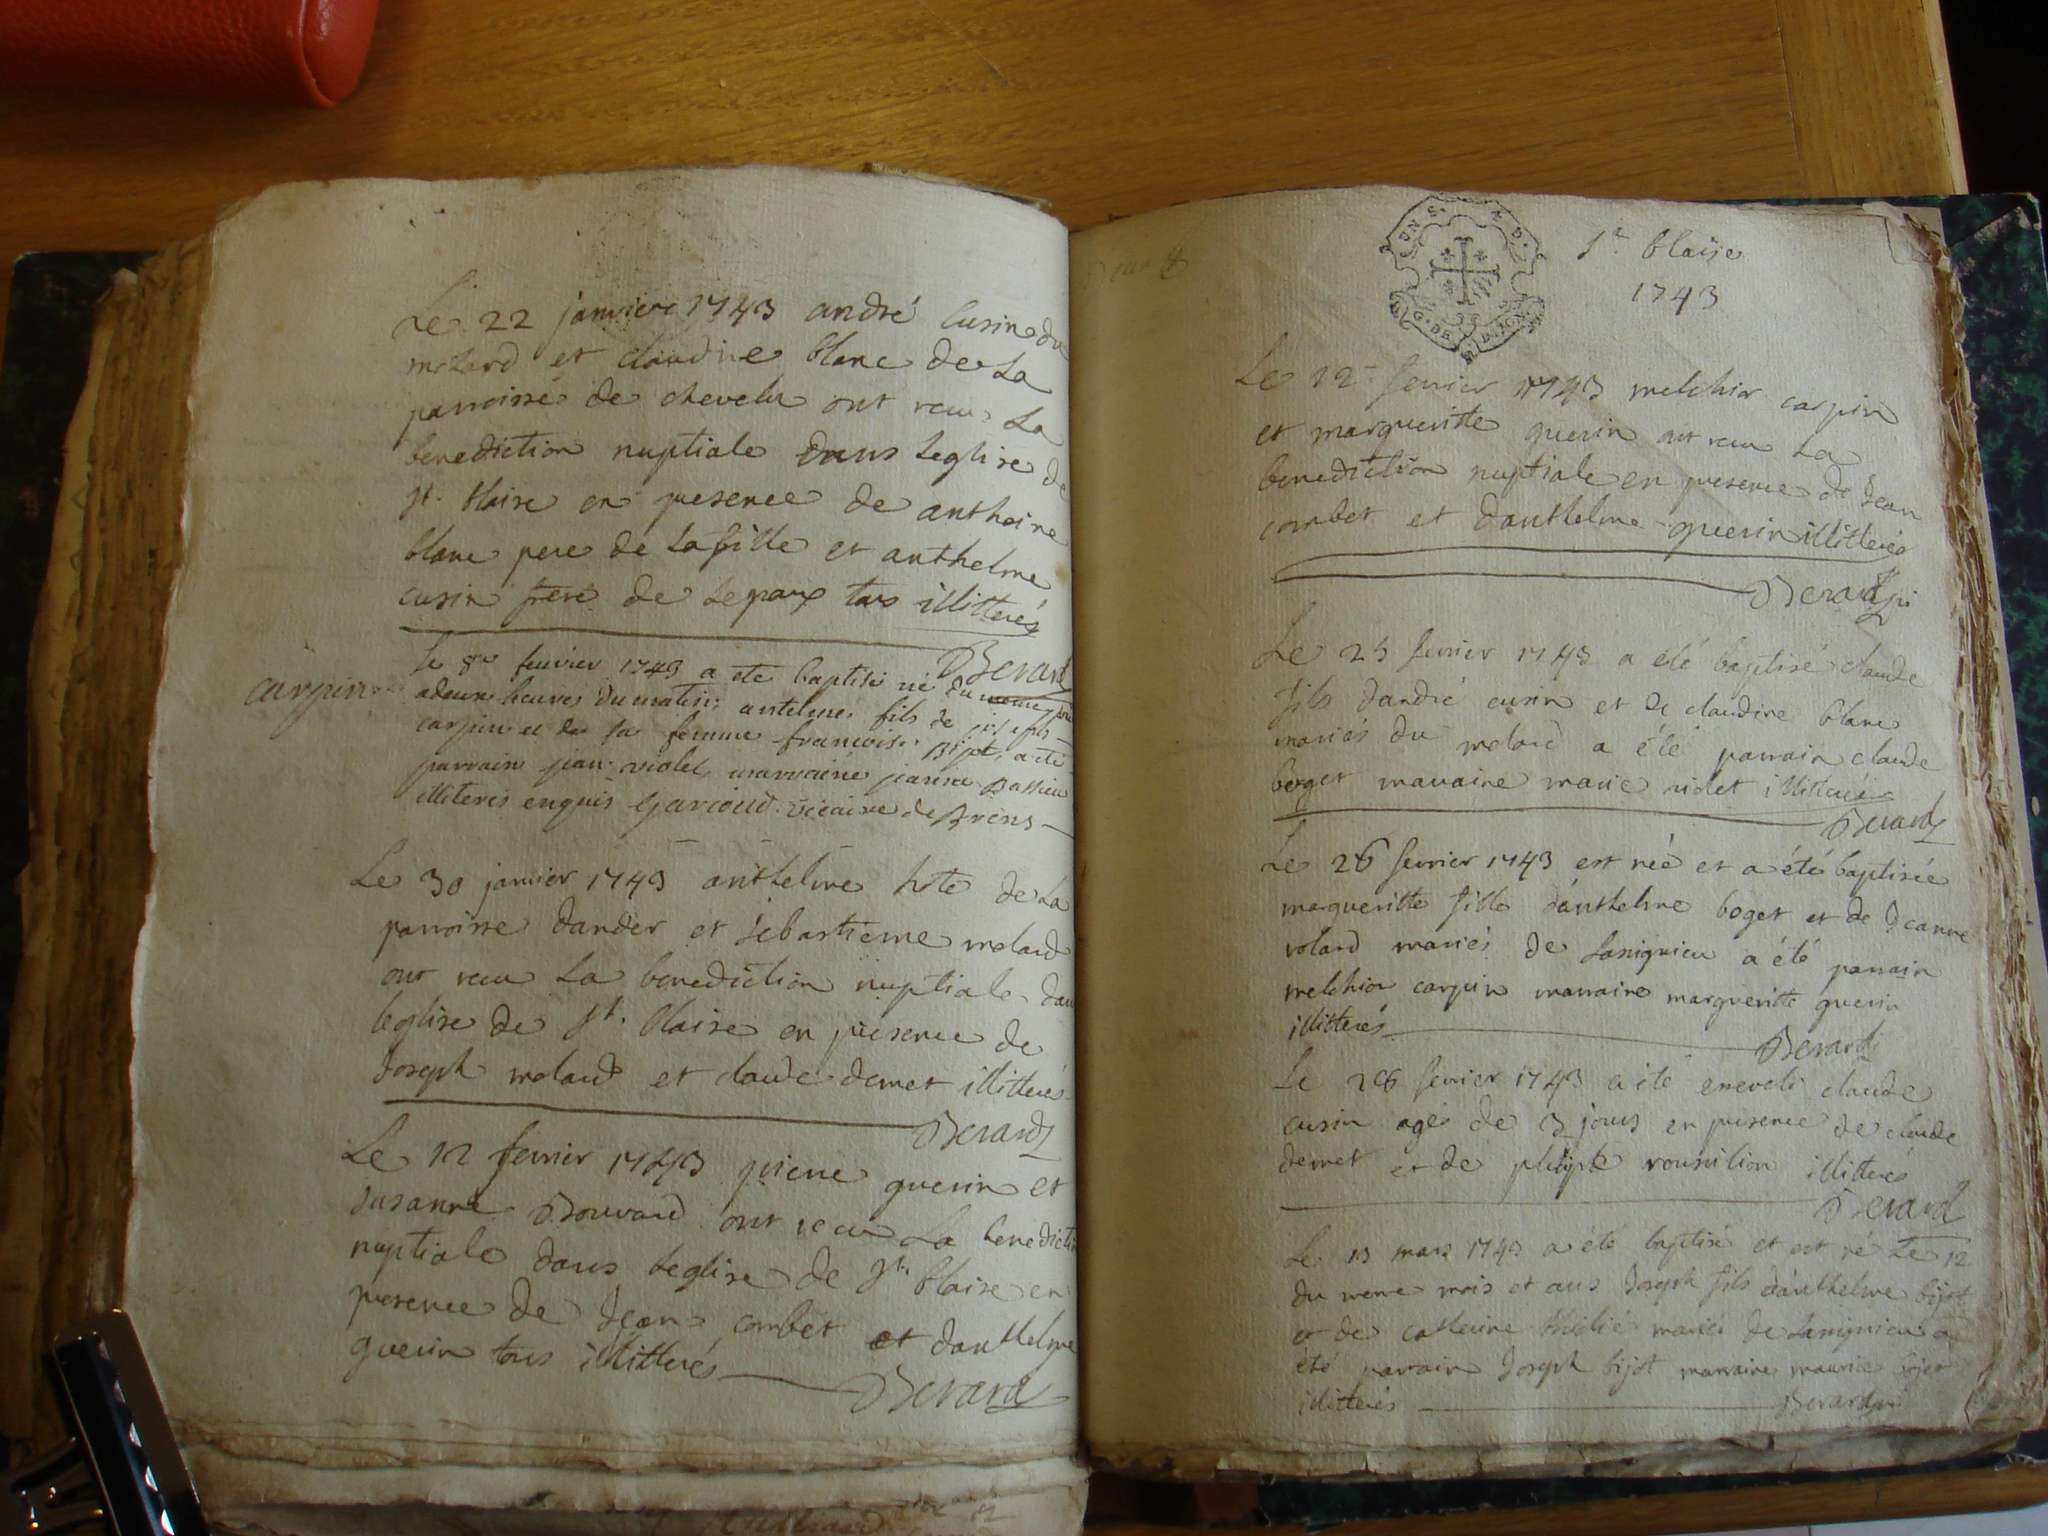 Le 22 janvier 1743 andré Cusin du
molard et claudine blanc de La
parroisse de chevelu ont receu La
benediction nuptiale dans Leglise de
St. blaise en presence de anthoine
blanc pere de Lafille et anthelme
cusin frere de Lepoux tous illitterés
Berard
carpin
le 8 feuvrier 1743 a ete baptisé né du meme jour
adeux heures du matin antelme fils de
carpin et de sa femme francoise Bijot, a ete
parrain jean violet, marraine jeanne
illiterés enquis Garioud vicaire de Brens
Le 30 janvier 1743 anthelme hote de La
parroisse dander et sebastienne molard
ont receu La benediction nuptiale dans
leglise de St. blaise en presence de
Joseph molard et claude demet illitterés
Berard
Le 12 fevrier 1743 pierre guerin et
susanne Bouvard ont receu La benediction
nuptiale dans leglise de St. blaise en
presence de Jean combet et danthelme
guerin tous illitterés
Berard
St. blaise
1743
Le 12 fevrier 1743 melchior carpin
et margueritte guerin ont receu La
benediction nuptiale en presence de Jean
combet et danthelme guerin illitterés
Berard
Le 25 fevrier 1743 a été baptisé claude
fils dandré cusin et de claudine blanc
mariés du molard a été parrain claude
boget maraine marie violet illitterés
Berard
Le 26 fevrier 1743 est née et a été baptisée
margueritte fille danthelme boget et de Jeanne
volard mariés de Lasignieu a été parrain
melchior carpin maraine margueritte guerin
illitterés
Berard
Le 26 fevrier 1743 a été enseveli claude
cusin agé de 3 jours en presence de claude
demet et de rousillion illitterés
Berard
Le 13 mars 1743 a été baptisé et est né Le 12
du meme mois et ans Joseph fils danthelme bijot
et de catherine mariés de Lasignieu a
été parrain Joseph bijot marraine maurice
illitterés
Berard